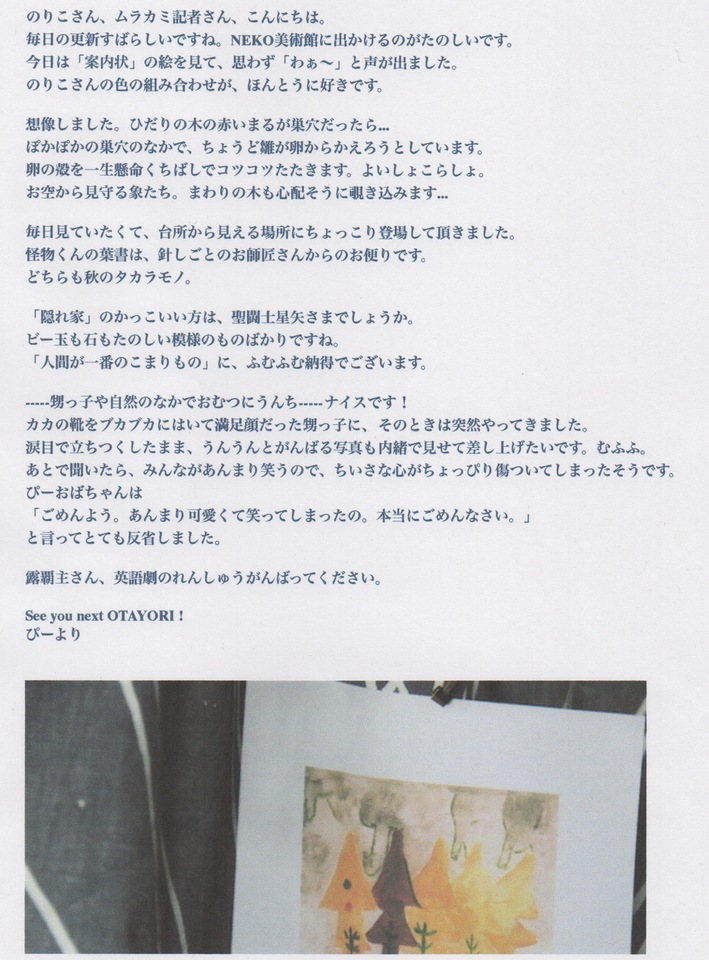 のりこさん、ムラカミ記者さん、こんにちは。
毎日の更新すばらしいですね。NEKO美術館に出かけるのがたのしいです。
今日は「案内状」の絵を見て、思わず「わぁ～」と声が出ました。
のりこさんの色の組み合わせが、ほんとうに好きです。
想像しました。ひだりの木の赤いまるが巣穴だったら...
ぽかぽかの巣穴のなかで、ちょうど雛が卵からかえろうとしています。
卵の殻を一生懸命くちばしでコツコツたたきます。よいしょこらしょ。
お空から見守る象たち。まわりの木も心配そうに覗き込みます...
毎日見ていたくて、台所から見える場所にちょっこり登場して頂きました。
怪物くんの葉書は、針しごとのお師匠さんからのお便りです。
どちらも秋のタカラモノ。
「隠れ家」のかっこいい方は、聖闘士星矢さまでしょうか。
ビー玉も石もたのしい模様のものばかりですね。
「人間が一番のこまりもの」に、ふむふむ納得でございます。
-----甥っ子や自然のなかでおむつにうんち-----ナイスです！
カカの靴をブカブカにはいて満足顔だった甥っ子に、そのときは突然やってきました。
涙目で立ちつくしたまま、うんうんとがんばる写真も内緒で見せて差し上げたいです。むふふ。
あとで聞いたら、みんながあんまり笑うので、ちいさな心がちょっぴり傷ついてしまったそうです。
ぴーおばちゃんは
「ごめんよう。あんまり可愛くて笑ってしまったの。本当にごめんなさい。」
と言ってとても反省しました。
露覇主さん、英語劇のれんしゅうがんばってください。
See you next OTAYORI !
ぴーより